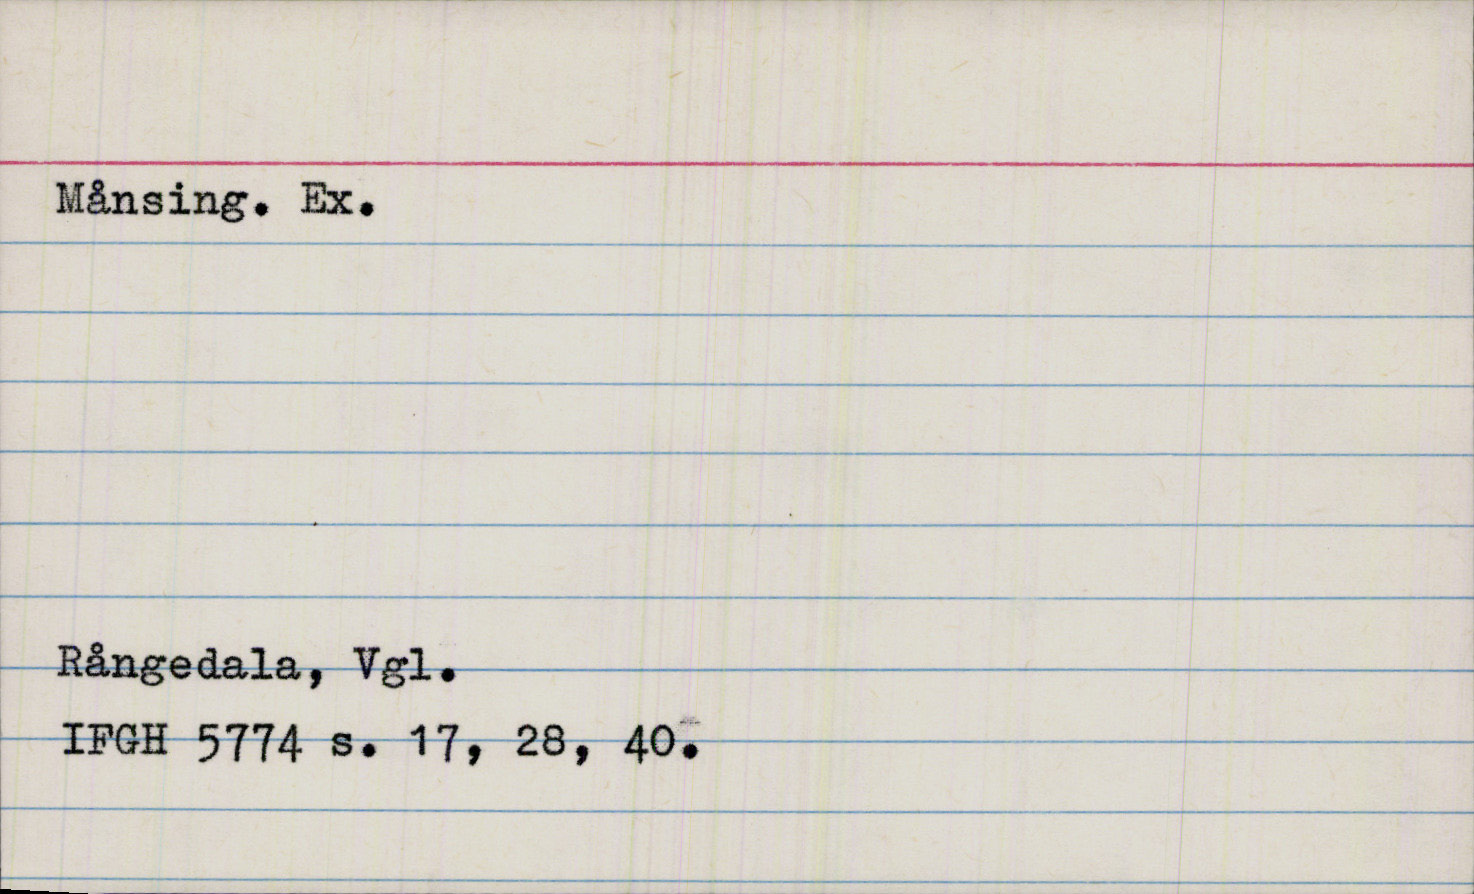 Månsing. Ex.
Rångedala, Vgl.
IFGH 5774 s. 17, 28, 40.